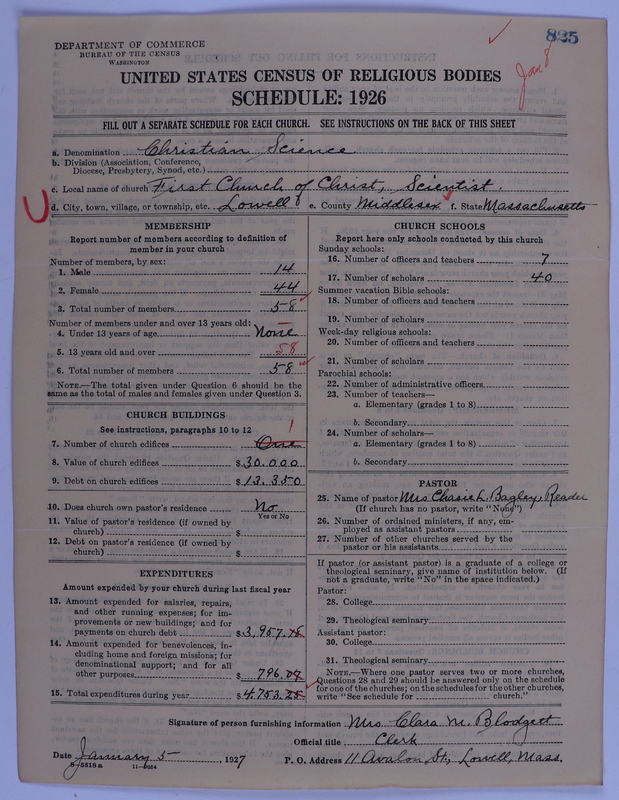 825
Jan 8
DEPARTMENT OF COMMERCE
BUREAU OF THE CENSUS
WASHINGTON
UNITED STATES CENSUS OF RELIGIOUS BODIES
SCHEDULE: 1926
FILL OUT A SEPARATE SCHEDULE FOR EACH CHURCH. SEE INSTRUCTIONS ON THE BACK OF THIS SHEET
a. Denomination Christian Science
b. Division (Association, Conference,
Diocese, Presbytery, Synod, etc.)
c. Local name of church First Church of Christ, Scientist.
d. City, town, village, or township, etc. Lowell e. County Middlesex f. State Massachusetts
MEMBERSHIP
Report number of members according to definition of
member in your church
Number of members, by sex:
1. Male 14
2. Female 44
3. Total number of members 58
Number of members under and over 13 years old:
4. Under 13 years of age None
5. 13 years old and over 58
6. Total number of members 58
NOTE.—The total given under Question 6 should be the
same as the total of males and females given under Question 3.
CHURCH BUILDINGS
See instructions, paragraphs 10 to 12
7. Number of church edifices One 1
8. Value of church edifices $30.000
9. Debt on church edifices $13.350
10. Does church own pastor's residence No
Yes or No
11. Value of pastor's residence (if owned by
church) $
12. Debt on pastor's residence (if owned by
church) $
EXPENDITURES
Amount expended by your church during last fiscal year
13. Amount expended for salaries, repairs,
and other running expenses; for im-
provements or new buildings; and for
payments on church debt $3,957.
14. Amount expended for benevolences, in-
cluding home and foreign missions; for
denominational support; and for all
other purposes 796.
15. Total expenditures during year $4.753.
CHURCH SCHOOLS
Report here only schools conducted by this church
Sunday schools:
16. Number of officers and teachers 7
17. Number of scholars 40
Summer vacation Bible schools:
18. Number of officers and teachers
19. Number of scholars
Week-day religious schools:
20. Number of officers and teachers
21. Number of scholars
Parochial schools:
22. Number of administrative officers
23. Number of teachers—
a. Elementary (grades 1 to 8)
b. Secondary
24. Number of scholars—
a. Elementary (grades 1 to 8)
b. Secondary
PASTOR
25. Name of pastor Mrs L. Bagley, Reader
(If church has no pastor, write "None")
26. Number of ordained ministers, if any, em-
ployed as assistant pastors
27. Number of other churches served by the
pastor or his assistants
If pastor (or assistant pastor) is a graduate of a college or
theological seminary, give name of institution below. (If
not a graduate, write "No" in the space indicated.)
Pastor:
28. College
29. Theological seminary
Assistant pastor:
30. College
31. Theological seminary
NOTE.—Where one pastor serves two or more churches,
Questions 28 and 29 should be answered only on the schedule
for one of the churches; on the schedules for the other churches,
write "See schedule for church."
Signature of person furnishing information Mrs. Clara M. Blodgett
Official title Clerk
Date January 5, 1927 P. O. Address 11 Avalon St., Lowell, Mass.